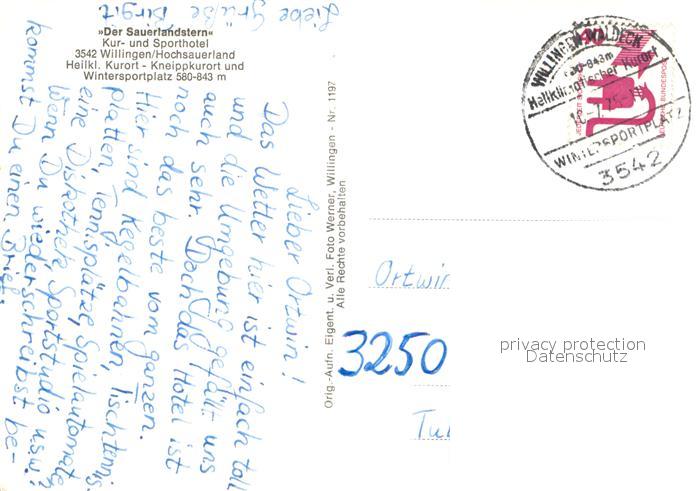 »Der Sauerlandstern«
Kur- und Sporthotel
3542 Willingen/Hochsauerland
Heilkl. Kurort - Kneippkurort und
Wintersportplatz 580-843 m
Lieber Ortwin!
Das Wetter hier ist einfach toll
und die Umgebung gefällt uns
auch sehr. Doch das Hotel ist
noch das beste vom ganzen.
Hier sind Kegelbahnen, Tischtennis-
platten, Tennisplätze, Spielautomaten,
eine Diskothek, Sportstudio usw.
Wenn Du wiederschreibst be-
kommst Du einen Brief.
Liebe Grüße Birgit
Orig.-Aufn. Eigent. u. Verl. Foto Werner, Willingen - Nr. 1197
Alle Rechte vorbehalten
WILLINGEN WALDECK
580-843m
Heilklimatischer Kurort
WINTERSPORTPLATZ
3542
DEUTSCHE BUNDESPOST
Ortwin
3250
privacy protection
Datenschutz